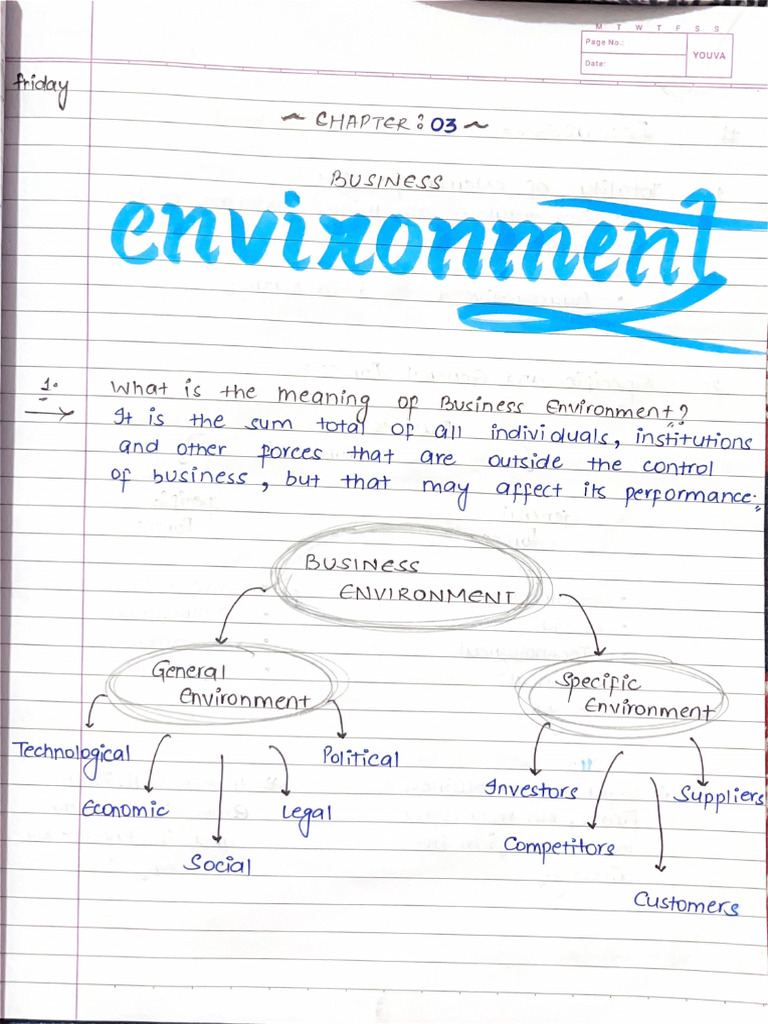 M T W T F S S
Page No.:
YOUVA
Date:
friday
~ CHAPTER : 03 ~
BUSINESS
environment
1. What is the meaning of Business Environment?
→ It is the sum total of all individuals, institutions
and other forces that are outside the control
of business, but that may affect its performance.
BUSINESS
ENVIRONMENT
General
Environment
Specific
Environment
Technological
Political
Economic
Legal
Social
Investors
Suppliers
Competitors
Customers